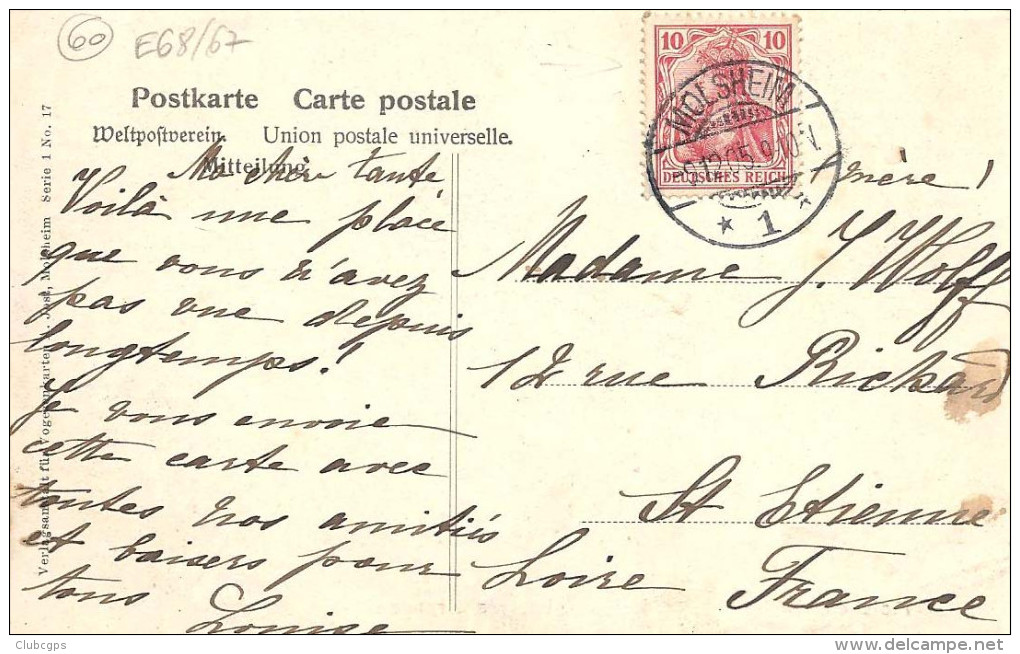 60
E68/67
Postkarte Carte postale
Weltpostverein. Union postale universelle.
Mitteilung.
Ma chère tante
Voilà une place
que vous n'avez
pas vue depuis
longtemps!
Je vous envoie
cette carte avec
toutes nos amitiés
et baisers pour
tous
Louise
Verlagsanstalt für Vogesenkarten Jost, Molsheim Serie 1 No. 17
10 10
DEUTSCHES REICH
MOLSHEIM
12 05
* 1 *
Madame J. Wolff
12 rue Richard
St Etienne
Loire France
Clubcgps
www.delcampe.net